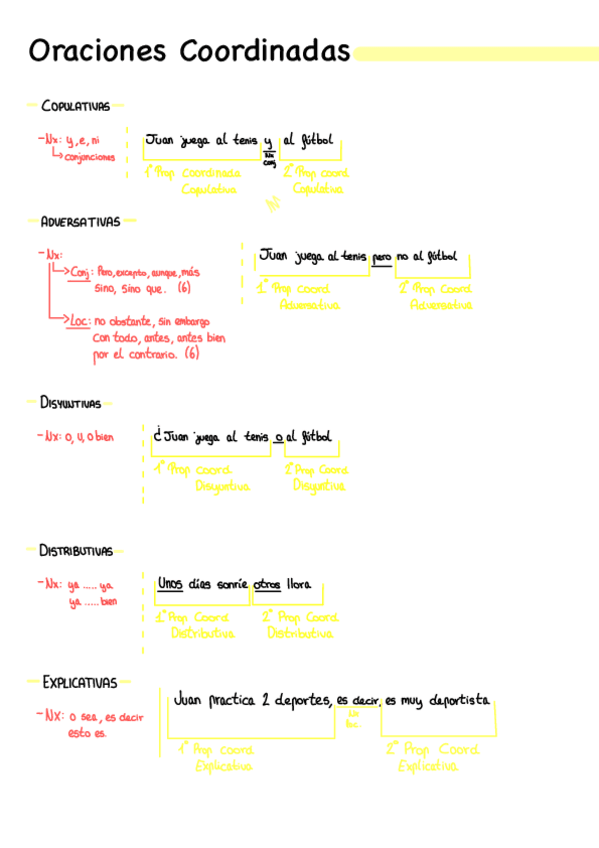 Oraciones Coordinadas
COPULATIVAS
- Nx: y, e, ni
conjunciones
Juan juega al tenis y al fútbol
Nx
conj
1ª Prop coordinada
Copulativa
2ª Prop coord
Copulativa
ADVERSATIVAS
- Nx:
Conj: Pero, excepto, aunque, más
sino, sino que. (6)
Loc: no obstante, sin embargo
con todo, antes, antes bien
por el contrario. (6)
Juan juega al tenis pero no al fútbol
1ª Prop coord
Adversativa
2ª Prop Coord
Adversativa
DISYUNTIVAS
- Nx: o, u, o bien
¿Juan juega al tenis o al fútbol
1ª Prop coord
Disyuntiva
2ª Prop Coord
Disyuntiva
DISTRIBUTIVAS
- Nx: ya ..... ya
ya ..... bien
Unos días sonríe otros llora
1ª Prop Coord
Distributiva
2ª Prop Coord
Distributiva
EXPLICATIVAS
- NX: o sea, es decir
esto es.
Juan practica 2 deportes, es decir, es muy deportista
Nx
1ª Prop coord
Explicativa
2ª Prop Coord
Explicativa